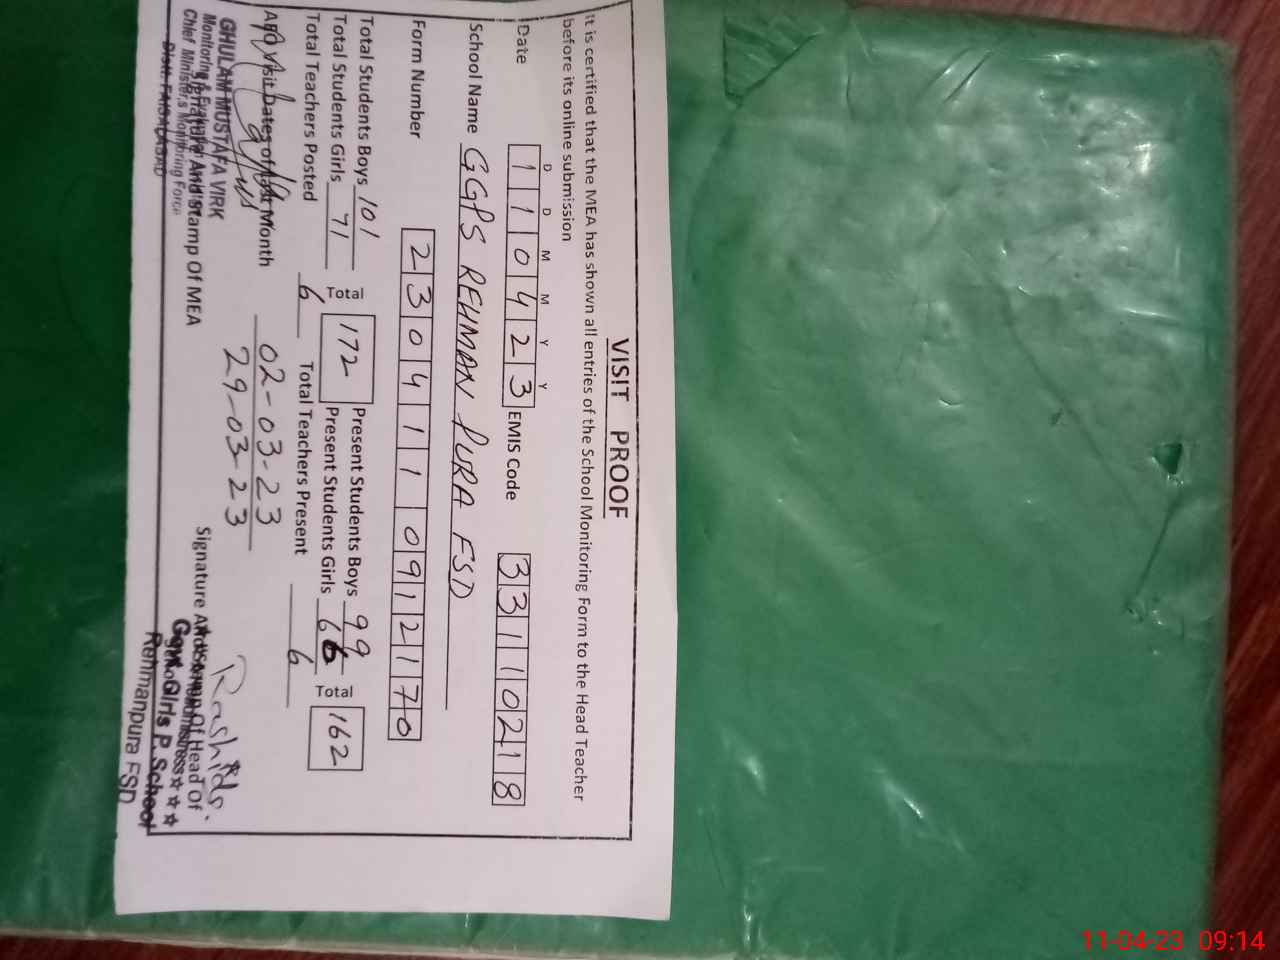 VISIT PROOF
It is certified that the MEA has shown all entries of the School Monitoring Form to the Head Teacher
before its online submission
D D M M Y Y
Date 1 1 0 4 2 3 EMIS Code 3 3 1 1 0 2 1 8
School Name GGPS REHMAN PURA FSD
Form Number 2 3 0 4 1 1 1 0 9 1 2 1 7 0
Total Students Boys 101 Total 172 Present Students Boys 99 Total 162
Total Students Girls 71 Present Students Girls 66
Total Teachers Posted 6 Total Teachers Present 6
AEO Visit Dates of Last Month 02-03-23
29-03-23
GHULAM MUSTAFA VIRK
Monitoring & Evaluation
Chief Minister,s Monitoring Force
Distt: FAISALABAD
Signature And Stamp Of MEA
Rashida.
Signature And Stamp Of Head Of School
Govt. Girls P. School
Rehmanpura FSD
11-04-23 09:14